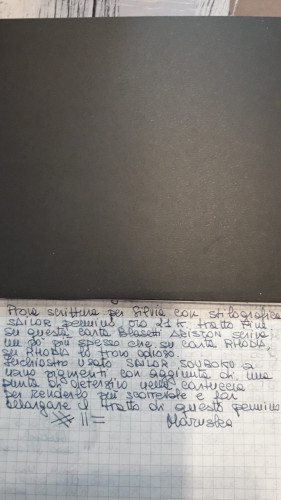 Prova scrittura per Silvia con stilografica
SAILOR pennino oro 21 K. tratto Fine
su questa carta Blasetti ARISTON scrive
un po' più spesso che su carta RHODIA,
su RHODIA lo trovo odioso.
Inchiostro usato SAILOR SOUBOKU a
nano pigmenti con aggiunta di una
punta di detersivo nella cartuccia
per renderlo più scorrevole e far
allargare il tratto di questo pennino